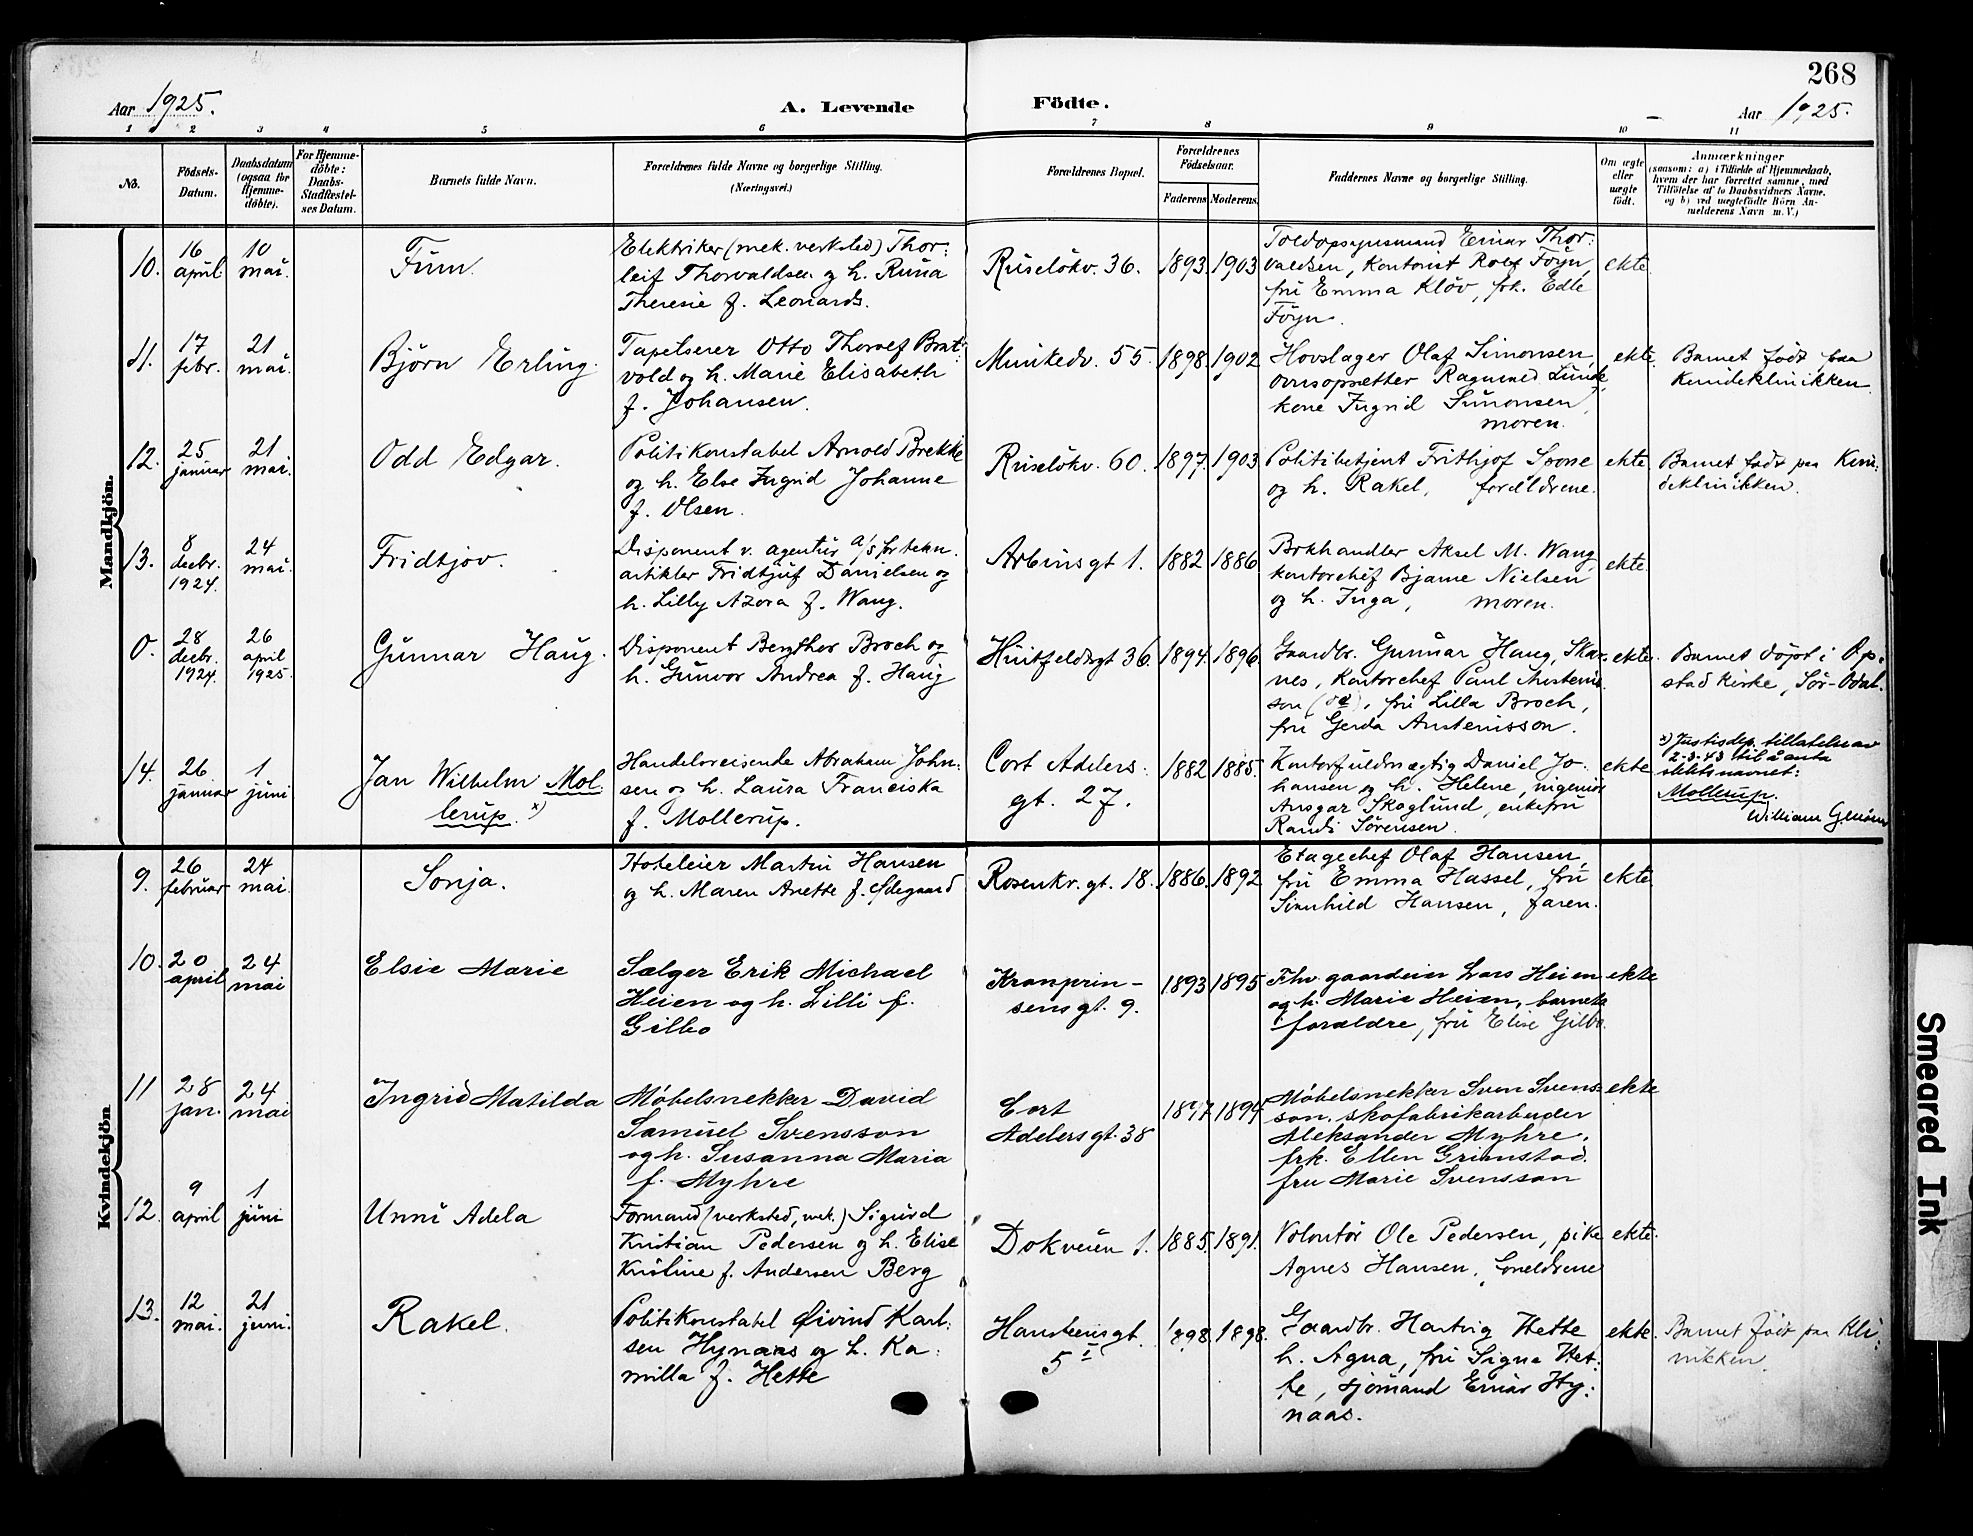 268
Aar 1925.
A. Levende
Födte.
Aar 1925.
1 2 3 4 5 6 7 8 9 10 11
No.
Födsels-
Datum.
Daabsdatum
(ogsaa for
Hjemme-
döbte).
For Hjemme-
döbte:
Daabs-
Stadfæstel-
ses Datum.
Barnets fulde Navn.
Forældrenes fulde Navne og borgerlige Stilling.
(Næringsvei.)
Forældrenes Bopæl.
Forældrenes
Födselsaar.
Faderens
Moderens
Faddernes Navne og borgerlige Stilling.
Om ægte
eller
uægte
födt.
Anmærkninger
(saasom: a) i Tilfælde af Hjemmedaab,
hvem der har forrettet samme, med
Tilföielse af to Daabsvidners Navne,
og b) ved uægtefödte Börn An-
melderens Navn m. V.)
Mandkjön.
10.
16
april
10
mai.
Finn.
Elektriker (mek. verksted) Thor:
leif Thorvaldsen og h. Runa
Theresie f. Leonards.
Ruseløkv. 36.
1893
1903
Toldopsynsmand Einar Thor:
valdsen, Kontorist Rolf Föyn,
fru Emma Klöv, frk. Edle
Föyn.
ekte
11.
17
febr.
21
mai.
Björn Erling.
Tapetserer Otto Thoralf Brat
vold og h. Marie Elisabeth
f. Johansen.
Munkedv. 55.
1898
1902
Hovslager Olaf Simonsen,
ovnsopsætter Ragnvald Lunde,
kone Ingrid Simonsen,
moren.
ekte.
Barnet født paa
Kvindeklinikken
12.
25
januar
21
mai.
Odd Edgar.
Politikonstabel Arnold Brekke
og h. Else Ingrid Johanne
f. Olsen.
Ruseløkv. 60.
1897
1903
Politibetjent Frithjof Svone
og h. Rakel, forældrene.
ekte
Barnet født paa Kvin:
deklinikken.
13.
8
decbr.
1924.
24
mai.
Fridtjov.
Disponent v. agentur a/s for tekn.
artikler Fridtjuf Danielsen og
h. Lilly Azora f. Wang.
Arbins gt 1.
1882
1886
Bokhandler Aksel M. Wang,
kontorchef Bjarne Nielsen
og h. Inga, moren.
ekte.
0.
28
decbr.
1924.
26
april
1925.
Gunnar Haug.
Disponent Bergthor Broch og
h. Gunvor Andrea f. Haug
Huitfeldtsgt 36.
1894
1896
Gaardbr. Gunnar Haug, Skar
nes, Kontorchef Paul Austenis
son, fru Lilla Broch,
fru Gerda Austenisson.
ekte.
Barnet døpt i Op-
stad kirke, Sør-Odal.
14.
26
januar
1
juni
Jan Wilhelm Mol
lerup. x)
Handelsreisende Abraham John:
sen og h. Laura Franciska
f. Mollerup.
Cort Adelers
gt. 27.
1882
1885
Kontorfuldmægtig Daniel Jo-
hansen og h. Helene, ingeniör
Ansgar Skoglund, enkefru
Randi Sørensen.
ekte
x) Justisdep. tillatelse av
2-3-43 til å anta
slektsnavnet:
Mollerup.
William
Kvindekjön
9.
26
februar
24
mai.
Sonja.
Hoteleier Martin Hansen
og h. Maren Anette f. Ødegaard
Rosenkr. gt. 18.
1886
1892
Etagechef Olaf Hansen,
fru Emma Hassel, fru
Sinnhild Hansen, faren.
ekte
10.
20
april
24
mai
Elsie Marie
Sælger Erik Michael
Heien og h. Lilli f.
Gilbo
Kronprin-
sens gt. 9.
1893
1895
Fhv. gaardeier Lars Heien
og h. Marie Heien, barnets
forældre, fru Elise Gilbo.
ekte
11
28
jan.
24
mai
Ingrid Matilda
Møbelsnekker David
Samuel Svensson
og h. Susanna Maria
f. Myhre
Cort
Adelers gt. 38
1897
1894
Møbelsnekker Sven Svens-
son, skofabrikarbeider
Aleksander Myhre,
frk. Ellen Grimstad.
fru Marie Svensson
ekte
12.
9
april
1
juni
Unni Adela
Formand (verksted, mek.) Sigurd
Kristian Pedersen og h. Elise
Kristine f. Andersen Berg
Dokveien 1.
1885
1891.
Volontör Ole Pedersen, pike
Agnes Hansen, foreldrene
ekte.
13.
12
mai.
21
juni.
Rakel.
Politikonstabel Øivind Karl-
sen Hynaas og h. Ka:
milla f. Hette
Hansteensgt.
5 I
1898.
1898.
Gaardbr. Hartvig Hette
h. Agna, fru Signe Het:
te, sjömand Einar Hy:
naas.
ekte.
Barnet født paa Kli:
nikken.
Smeared Ink